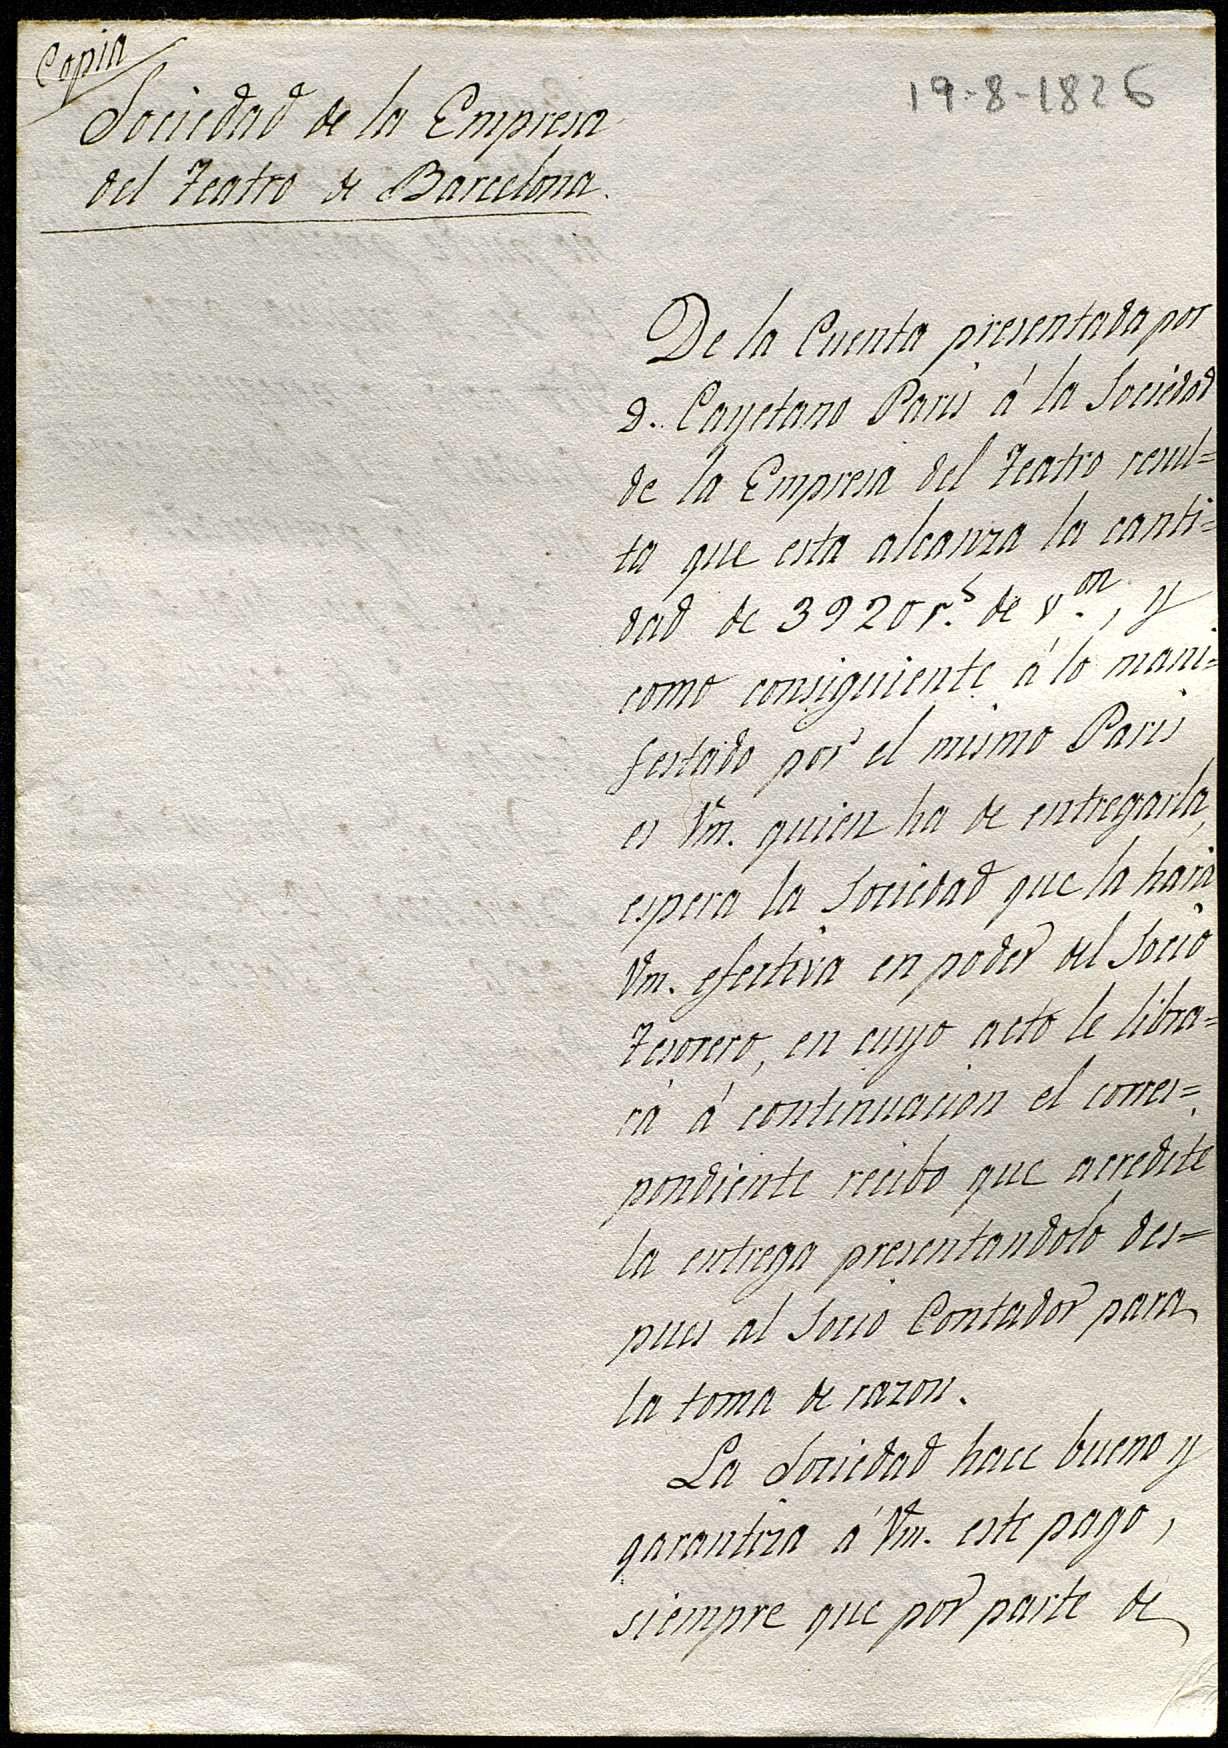 Copia
19-8-1826
Sociedad de la Empresa
del Teatro de Barcelona.
De la Cuenta presentada por
D. Cayetano Paris á la Sociedad
de la Empresa del Teatro resul=
ta que esta alcanza la canti=
dad de 3920 r.s de v.on, y
como consiguiente á lo mani=
festado por el mismo Paris
es Vm. quien ha de entregarla,
espera la Sociedad que la hará
Vm. efectiva en poder del Socio
Tesorero, en cuyo acto le libra=
rá á continuacion el corres=
pondiente recibo que acredite
la entrega presentandolo des=
pues al Socio Contador para
la toma de razon.
La Sociedad hace bueno y
garantiza á Vm. este pago,
siempre que por parte de